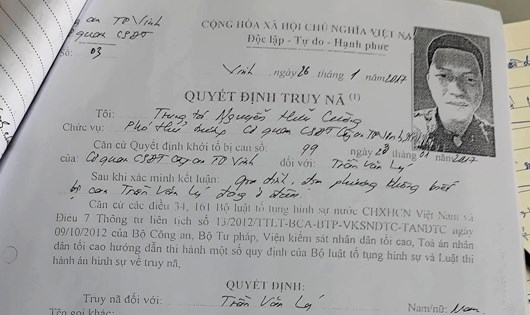 CỘNG HÒA XÃ HỘI CHỦ NGHĨA VIỆT NA
C an TP Vinh
Cơ quan CSĐT
Độc lập - Tự do - Hạnh phúc
Số: 03
Vinh, ngày 26 tháng 1 năm 2017
QUYẾT ĐỊNH TRUY NÃ (1)
Tôi: Trung tá Nguyễn Hữu Cường
Chức vụ: Phó thủ trưởng Cơ quan CSĐT Công an TP Vinh
Căn cứ Quyết định khởi tố bị can số: 99 ngày 28 tháng 01 năm 2017
của: Cơ quan CSĐT Công an TP Vinh đối với: Trần Văn Lý
Sau khi xác minh kết luận: Gia đình, địa phương không biết
bị can Trần Văn Lý đang ở đâu.
Căn cứ các điều 34, 161 Bộ luật tố tụng hình sự nước CHXHCN Việt Nam và
Điều 7 Thông tư liên tịch số 13/2012/TTLT-BCA-BTP-VKSNDTC-TANDTC ngày
09/10/2012 của Bộ Công an, Bộ Tư pháp, Viện kiểm sát nhân dân tối cao, Toà án nhân
dân tối cao hướng dẫn thi hành một số quy định của Bộ luật tố tụng hình sự và Luật thi
hành án hình sự về truy nã.
QUYẾT ĐỊNH:
Truy nã đối với: Trần Văn Lý Nam/nữ: Nam
Tên gọi khác: